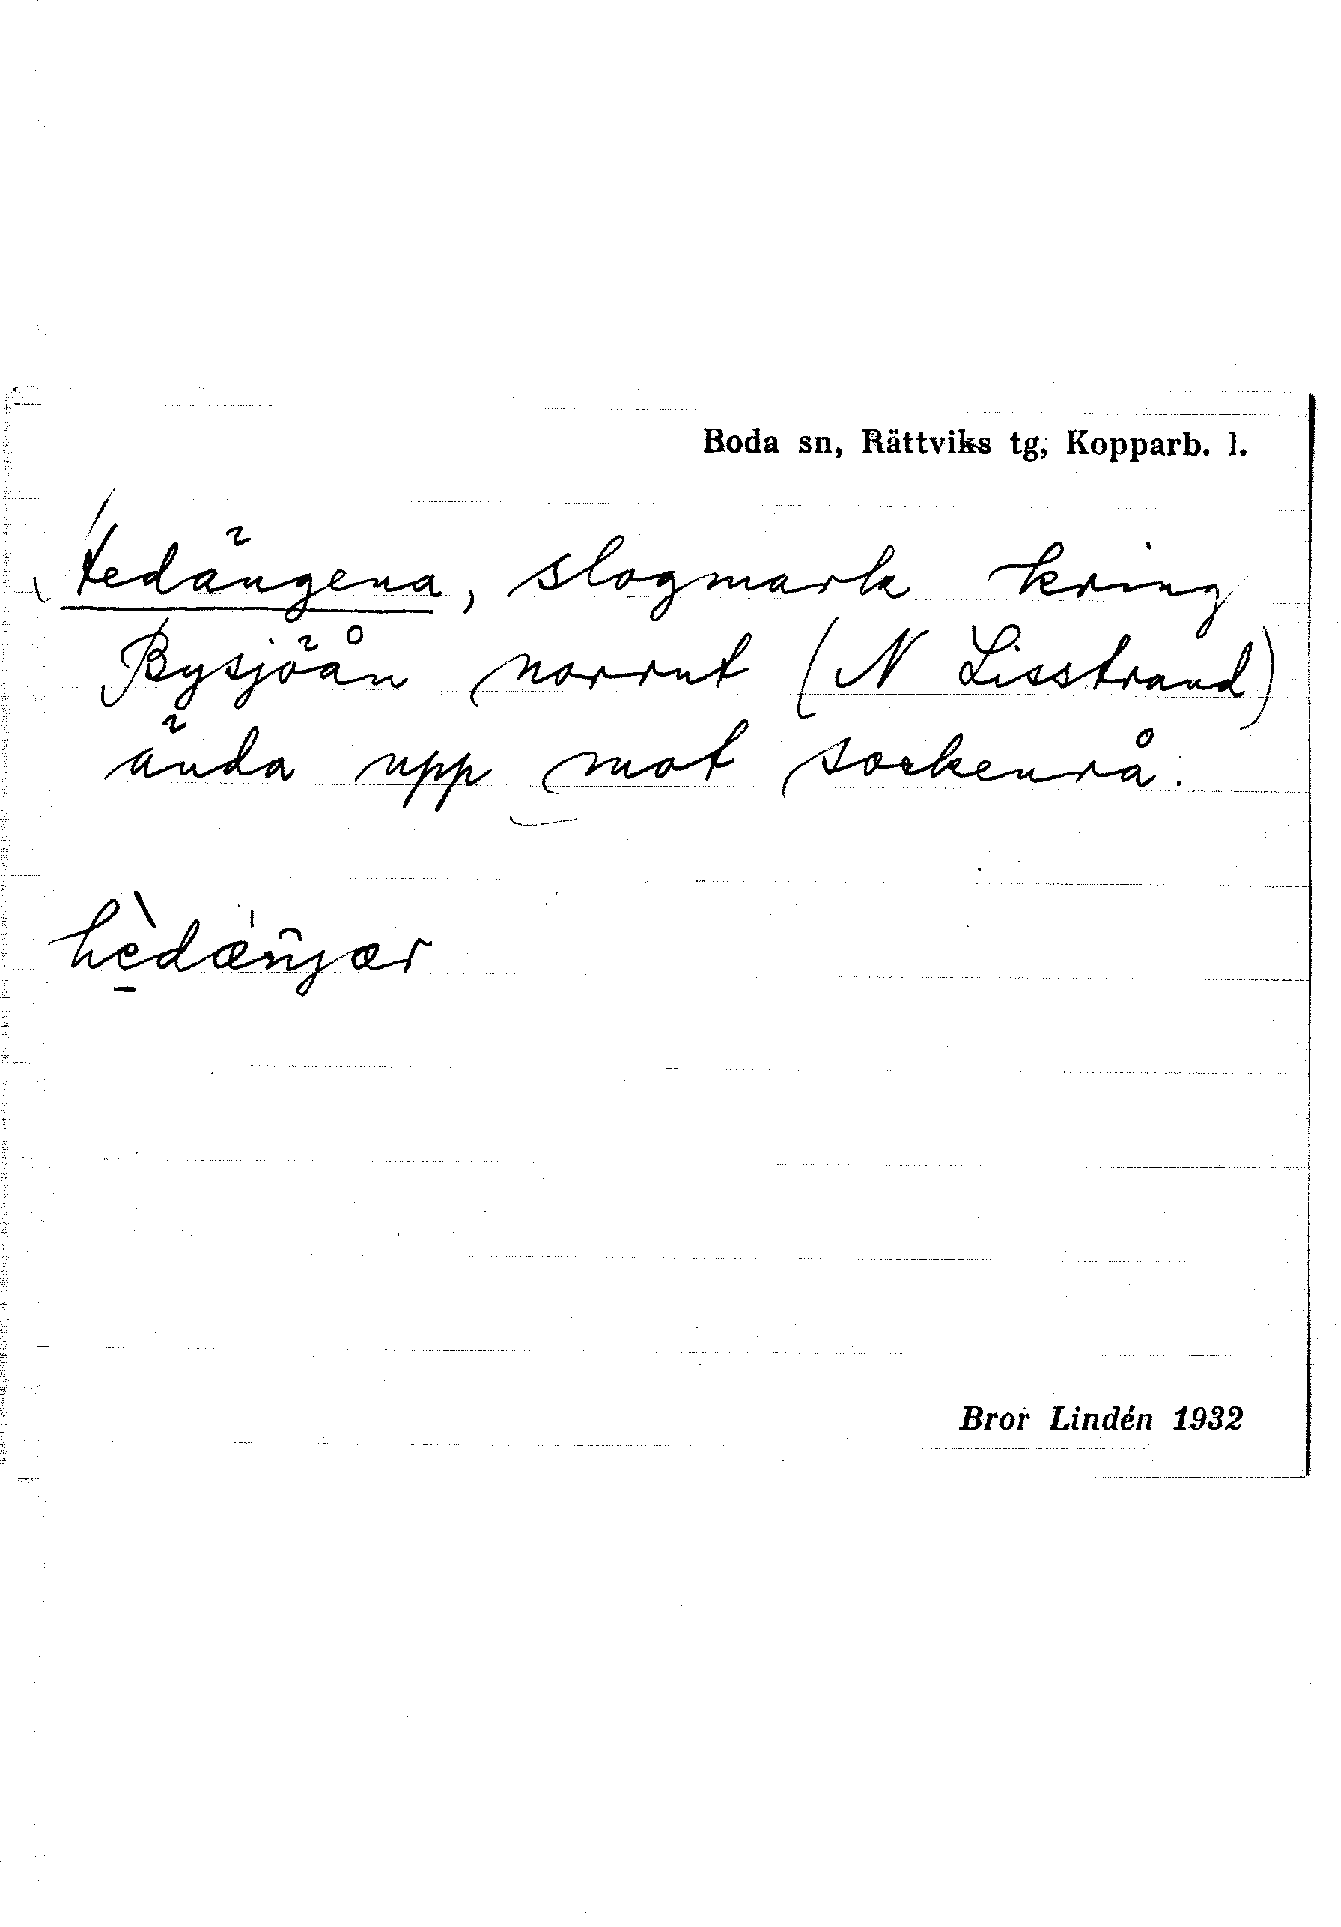 Boda sn, Rättviks tg, Kopparb. l.
Hedängena, slogmark kring
Bysjöån norrut (N Lisstrand)
ända upp mot sockenrå.
hèdæŋjær
Bror Lindén 1932